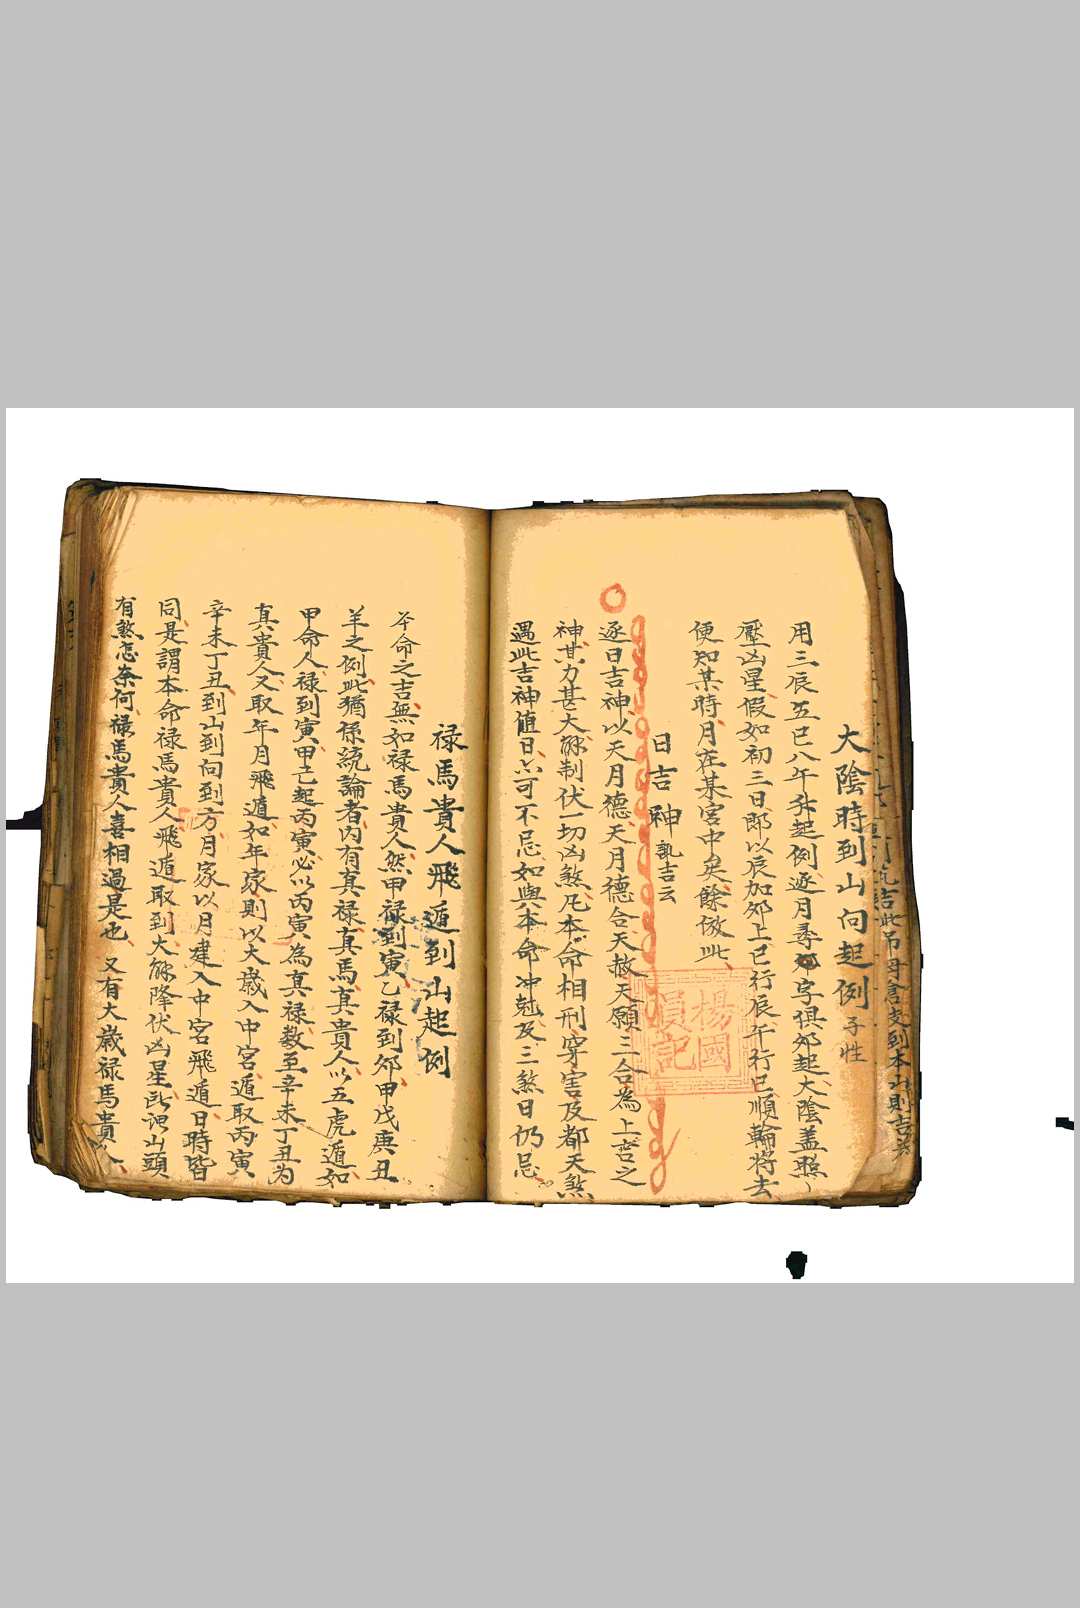 大陰時到山向起例
用三辰五巳八午升起例逐月尋卯字俱卯起大陰蓋照
壓凶星假如初三日即以辰加卯上巳行辰午行巳順輪將去
便知某時月在某宮中矣餘倣此
日吉神 訊吉云
逐日吉神以天月德天月德合天赦天願三合為上吉之
神其力甚大能制伏一切凶煞凡本命相刑穿害及都天煞
遇此吉神值日亦可不忌如與本命冲尅及三煞日仍忌
楊國
員記
祿馬貴人飛遁到山起例
本命之吉無如祿馬貴人然甲祿到寅乙祿到卯甲戊庚丑
羊之例此猶係統論者内有真祿真馬真貴人以五虎遁如
甲命人祿到寅甲己起丙寅必以丙寅為真祿数至辛未丁丑为
真貴人又取年月飛遁如年家則以大歲入中宮遁取丙寅
辛未丁丑到山到向到方月家以月建入中宮飛遁日時皆
同是謂本命祿馬貴人飛遁取到大能降伏凶星 山頭
有煞怎奈何祿馬貴人喜相過是也 又有大歲祿馬貴人